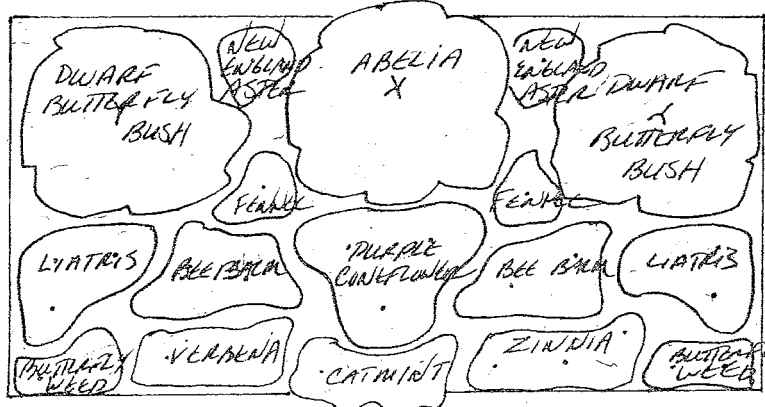 DWARF
BUTTERFLY
BUSH
NEW
ENGLAND
ASTER
ABELIA
X
NEW
ENGLAND
ASTER
DWARF
BUTTERFLY
BUSH
FENNEL
FENNEL
LIATRIS
BEE BALM
PURPLE
CONEFLOWER
BEE BALM
LIATRIS
BUTTERFLY
WEED
VERBENA
CATMINT
ZINNIA
BUTTERFLY
WEED